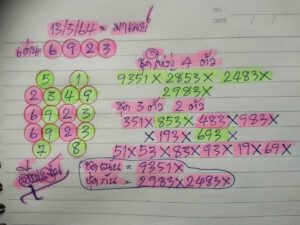 13/3/64 = มาเลย์
NO.
DATE
เด่น = 6 9 2 3
ชุดใหญ่ 4 ตัว
5 1
9351 X 2853 X 2483X
2 3 4 9
2983X
6 9 2 3
ชุด 3 ตัว 2 ตัว
6 9 2 3
351X 853X 483X 983X
6 9 2 3
X 193X 693X
7 8
51X 53X 83X 93X 19X 69X
ชุดเน้น = 9351X
ชุดกัน = 2983X 2483X